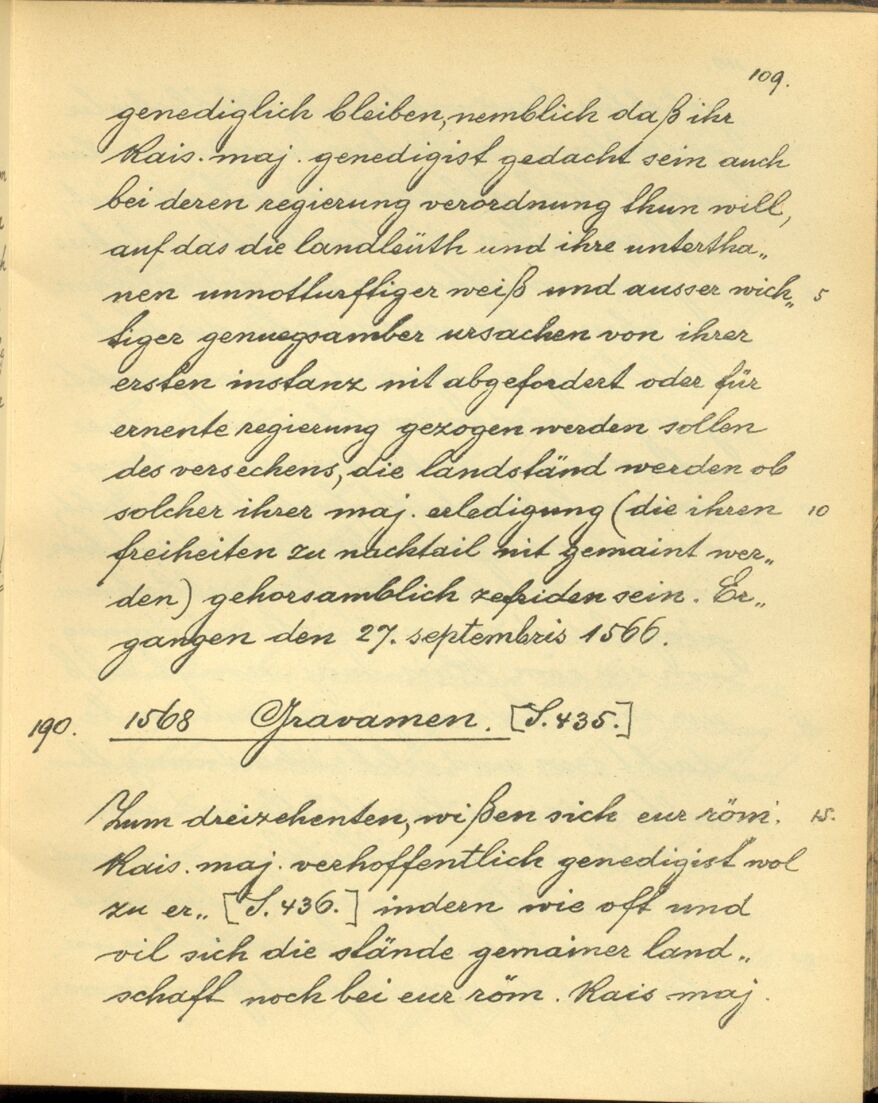 109.
genediglich bleiben, nemblich daß ihr
Kais. maj. genedigist gedacht sein auch
bei deren regierung verordnung thun will,
auf das die landleüth und ihre untertha„
nen unnotturftiger weiß und ausser wich„ 5
tiger genuegsamber ursachen von ihrer
ersten instanz nit abgefordert oder für
ernente regierung gezogen werden sollen
des versechens, die landständ werden ob
solcher ihrer maj. erledigung (die ihren 10
freiheiten zu nachtail nit gemaint wer„
den) gehorsamblich zefriden sein. Er„
gangen den 27. septembris 1566.
190. 1568 Gravamen. [S. 435.]
Zum dreizehenten, wißen sich eur röm. 15.
Kais. maj. verhoffentlich genedigist wol
zu er„ [S. 436.] indern wie oft und
vil sich die stände gemainer land„
schaft noch bei eur röm. Kais maj.